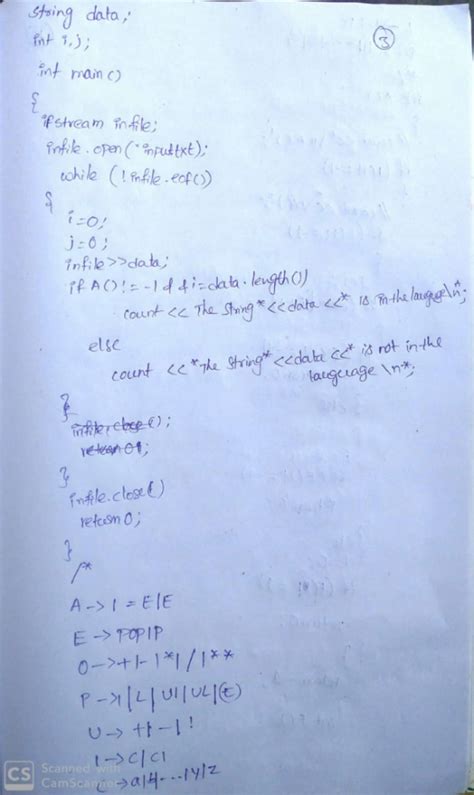 string data;
3
int i,j;
int main()
{
ifstream infile;
infile.open("input.txt);
while (!infile.eof())
{
i=0;
j=0;
infile>>data;
if A()!=-1 && i=data.length()
count << The String*<<data <<* is in the language\n*;
else
count <<*the string* <<data <<* is not in the
language \n*;
}
infile.close();
return 01;
}
infile.close()
return 0;
}
/*
A -> I = E|E
E -> POP|P
O -> +|-|*|/|**
P -> I|L|UI|UL|(E)
U -> +|-|!
I -> C|CI
-> a|4...|Y|Z
CS Scanned with
CamScanner